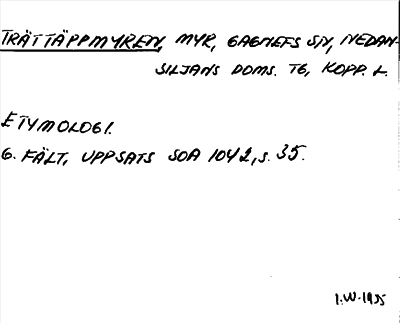 TRÄTTÄPPMYREN, MYR, GAGNEFS SN, NEDAN-
SILJANS DOMS. TG, KOPP. L.
ETYMOLOGI.
G. FÄLT, UPPSATS SOA 1042, S. 35.
I.W. 1955